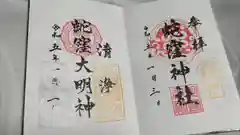 奉拝
蛇窪神社
令和五年一月三日
清澄
蛇窪大明神
令和五年一月